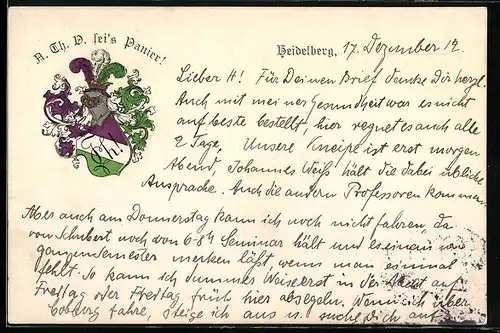 A. Th. V. sei's Panier!
Heidelberg, 17. Dezember 12.
Lieber H! Für Deinen Brief danke Dir herzl.
Auch mit meiner Gesundheit war es nicht
aufs beste bestellt, hier regnet es auch alle
2 Tage. Unsere Kneipe ist erst morgen
Abend, Johannes Weiß hält die dabei übliche
Ansprache. Auch die andern Professoren kommen.
Aber auch am Donnerstag kann ich noch nicht fahren, da
von Schubert noch von 6-8h Seminar hält und es einem
ganzen Semester merken läßt, wenn man einmal
fehlt. So kann ich dummerweise erst in der Nacht auf
Freitag oder Freitag früh hier absegeln. Wenn ich über
Coburg fahre, steige ich aus u. suche Dich auf